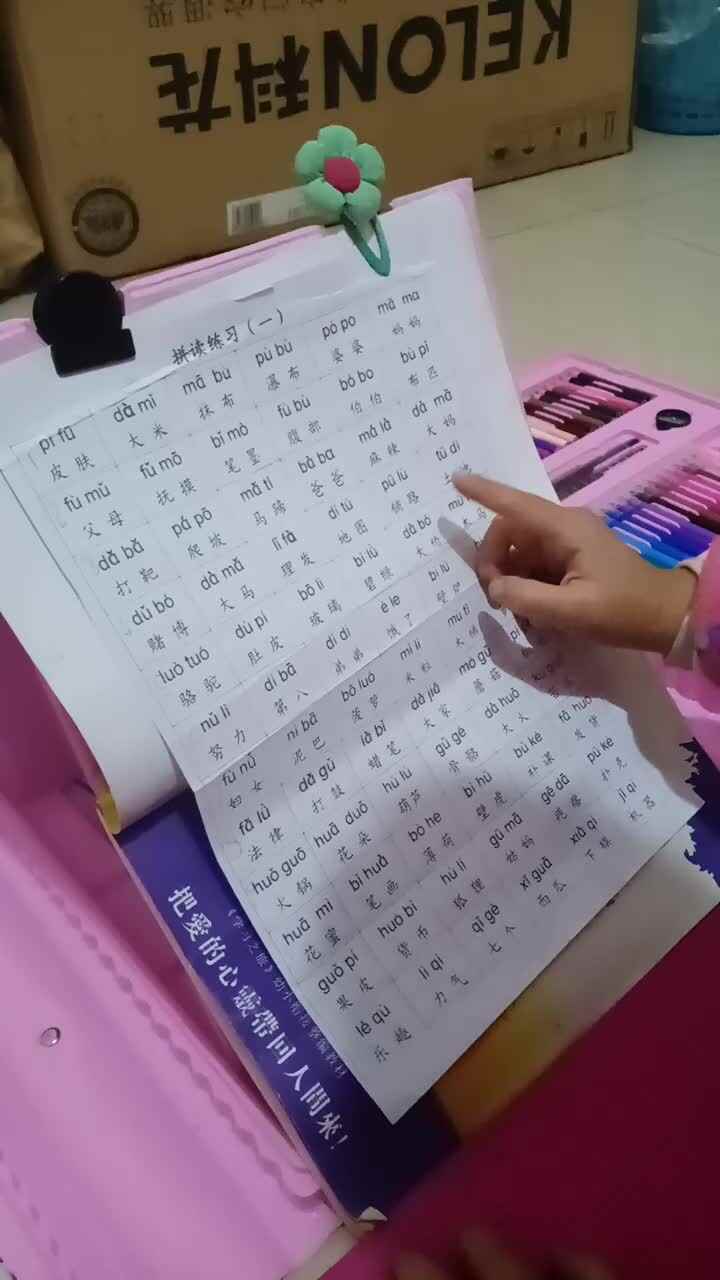 KELON科龙
拼读练习（一）
pí fū dà mǐ mā bù pù bù pó po mā ma
皮肤 大米 抹布 瀑布 婆婆 妈妈
fù mǔ fǔ mō bǐ mò fù bù bó bo bù pǐ
父母 抚摸 笔墨 腹部 伯伯 布匹
dǎ bǎ pá pō mǎ tí bà ba má là dà mā
打靶 爬坡 马蹄 爸爸 麻辣 大妈
dǔ bó dà mǎ lǐ fà dì tú pū lù tǔ dì
赌博 大马 理发 地图 铺路
luò tuó dù pí bō li bì lǜ dà bó
骆驼 肚皮 玻璃 碧绿 大伯 木马
nǔ lì dì bā dì di è le bì lú
努力 第八 弟弟 饿了 壁炉
fù nǚ ní bā bō luó mǐ lì
妇女 泥巴 菠萝 米粒
fǎ lǜ dǎ gǔ là bǐ dà jiā mó gū
法律 打鼓 蜡笔 大家 蘑菇
huǒ guō huā duǒ hú lu gǔ gé dà huǒ
火锅 花朵 葫芦 骨骼 大火
huā mì bǐ huà bò he bì hǔ bǔ kè fā huò
花蜜 笔画 薄荷 壁虎 补课 发货
guǒ pí huò bì hú li gū mā gē da pū kè
果皮 货币 狐狸 姑妈 疙瘩 扑克
lè qù lì qi qī gè xī guā xià qí jī qì
乐趣 力气 七个 西瓜 下棋 机器
《学习之旅》幼小衔接
把爱的心灵带回人间来！